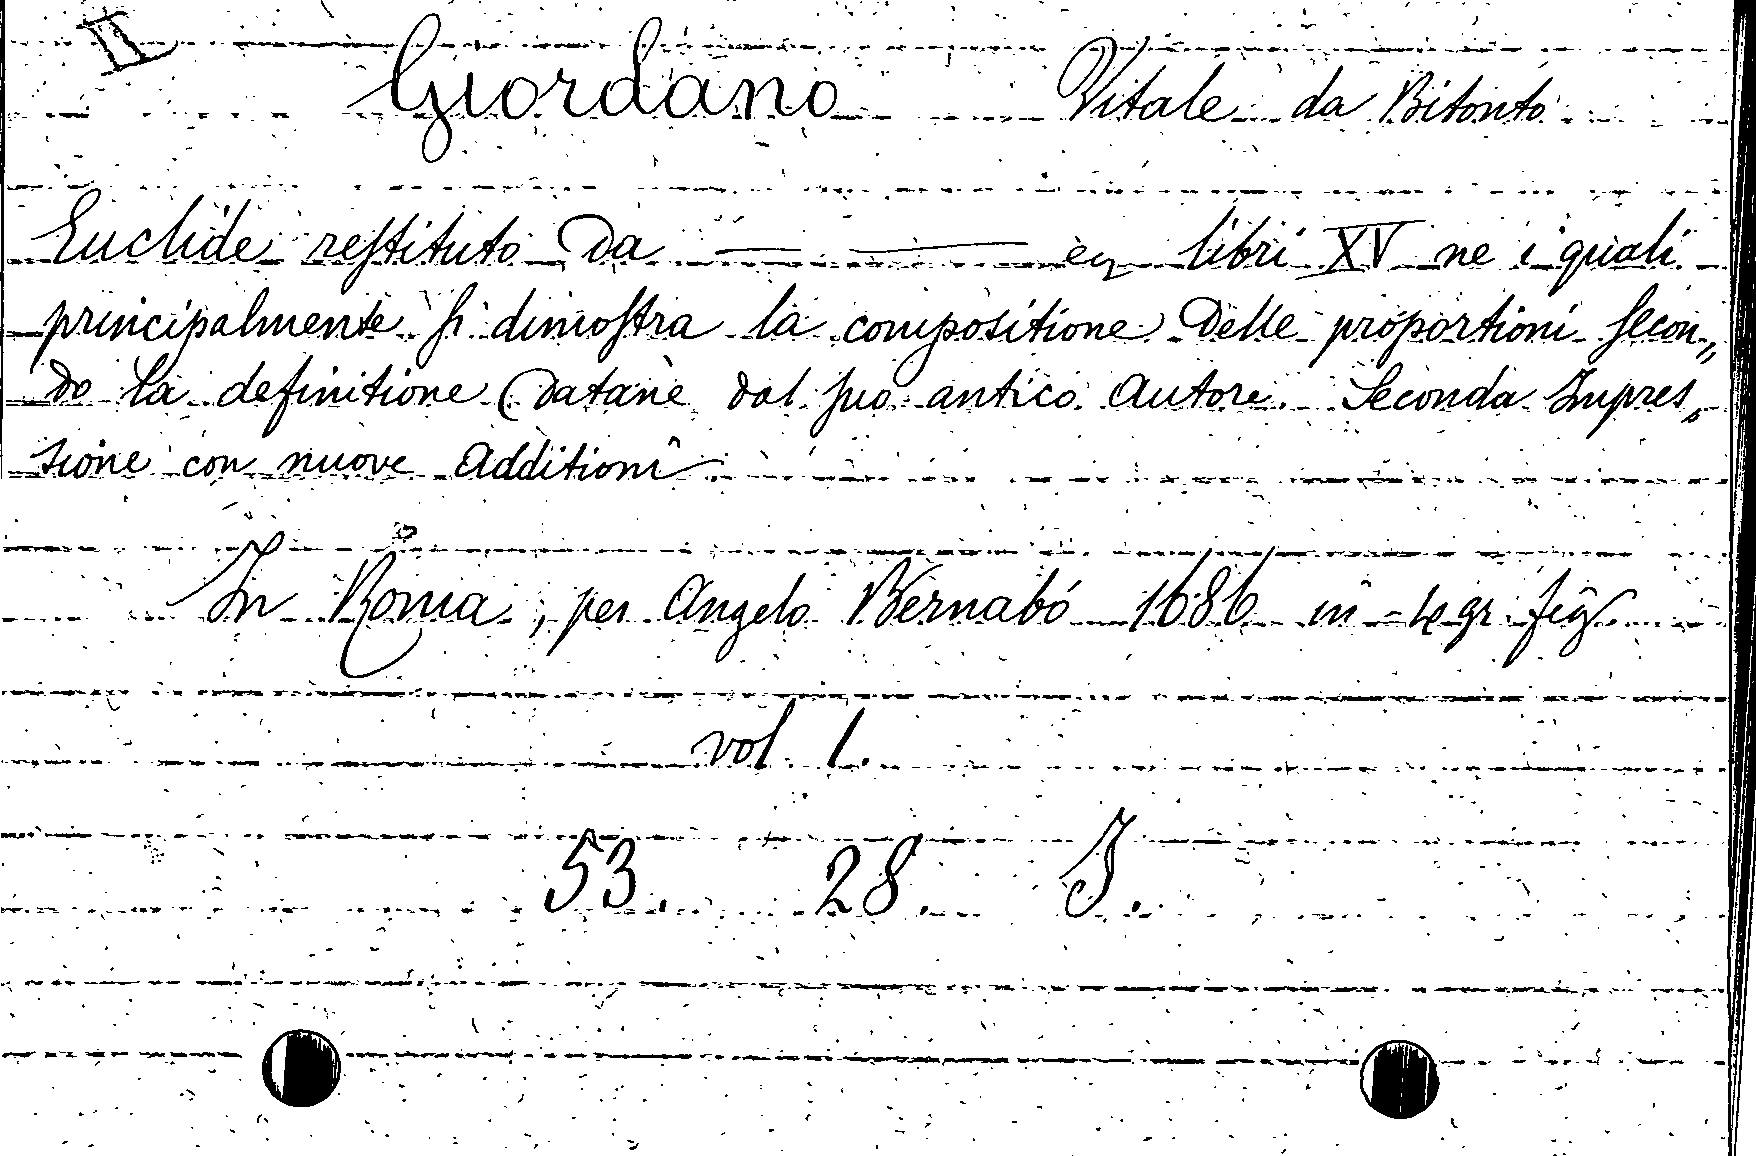 II
Giordano Vitale da Bitonto
Euclide reſtituto da — — eq libri XV ne i quali
principalmente ſi dimoſtra la compositione delle proportioni ſecon„
do la definitione datane dal ſuo antico autore. Seconda Impres„
sione con nuove additioni
In Roma, per Angelo Bernabó 1686 in-4 gr fig.
vol. 1.
53. 28. J.